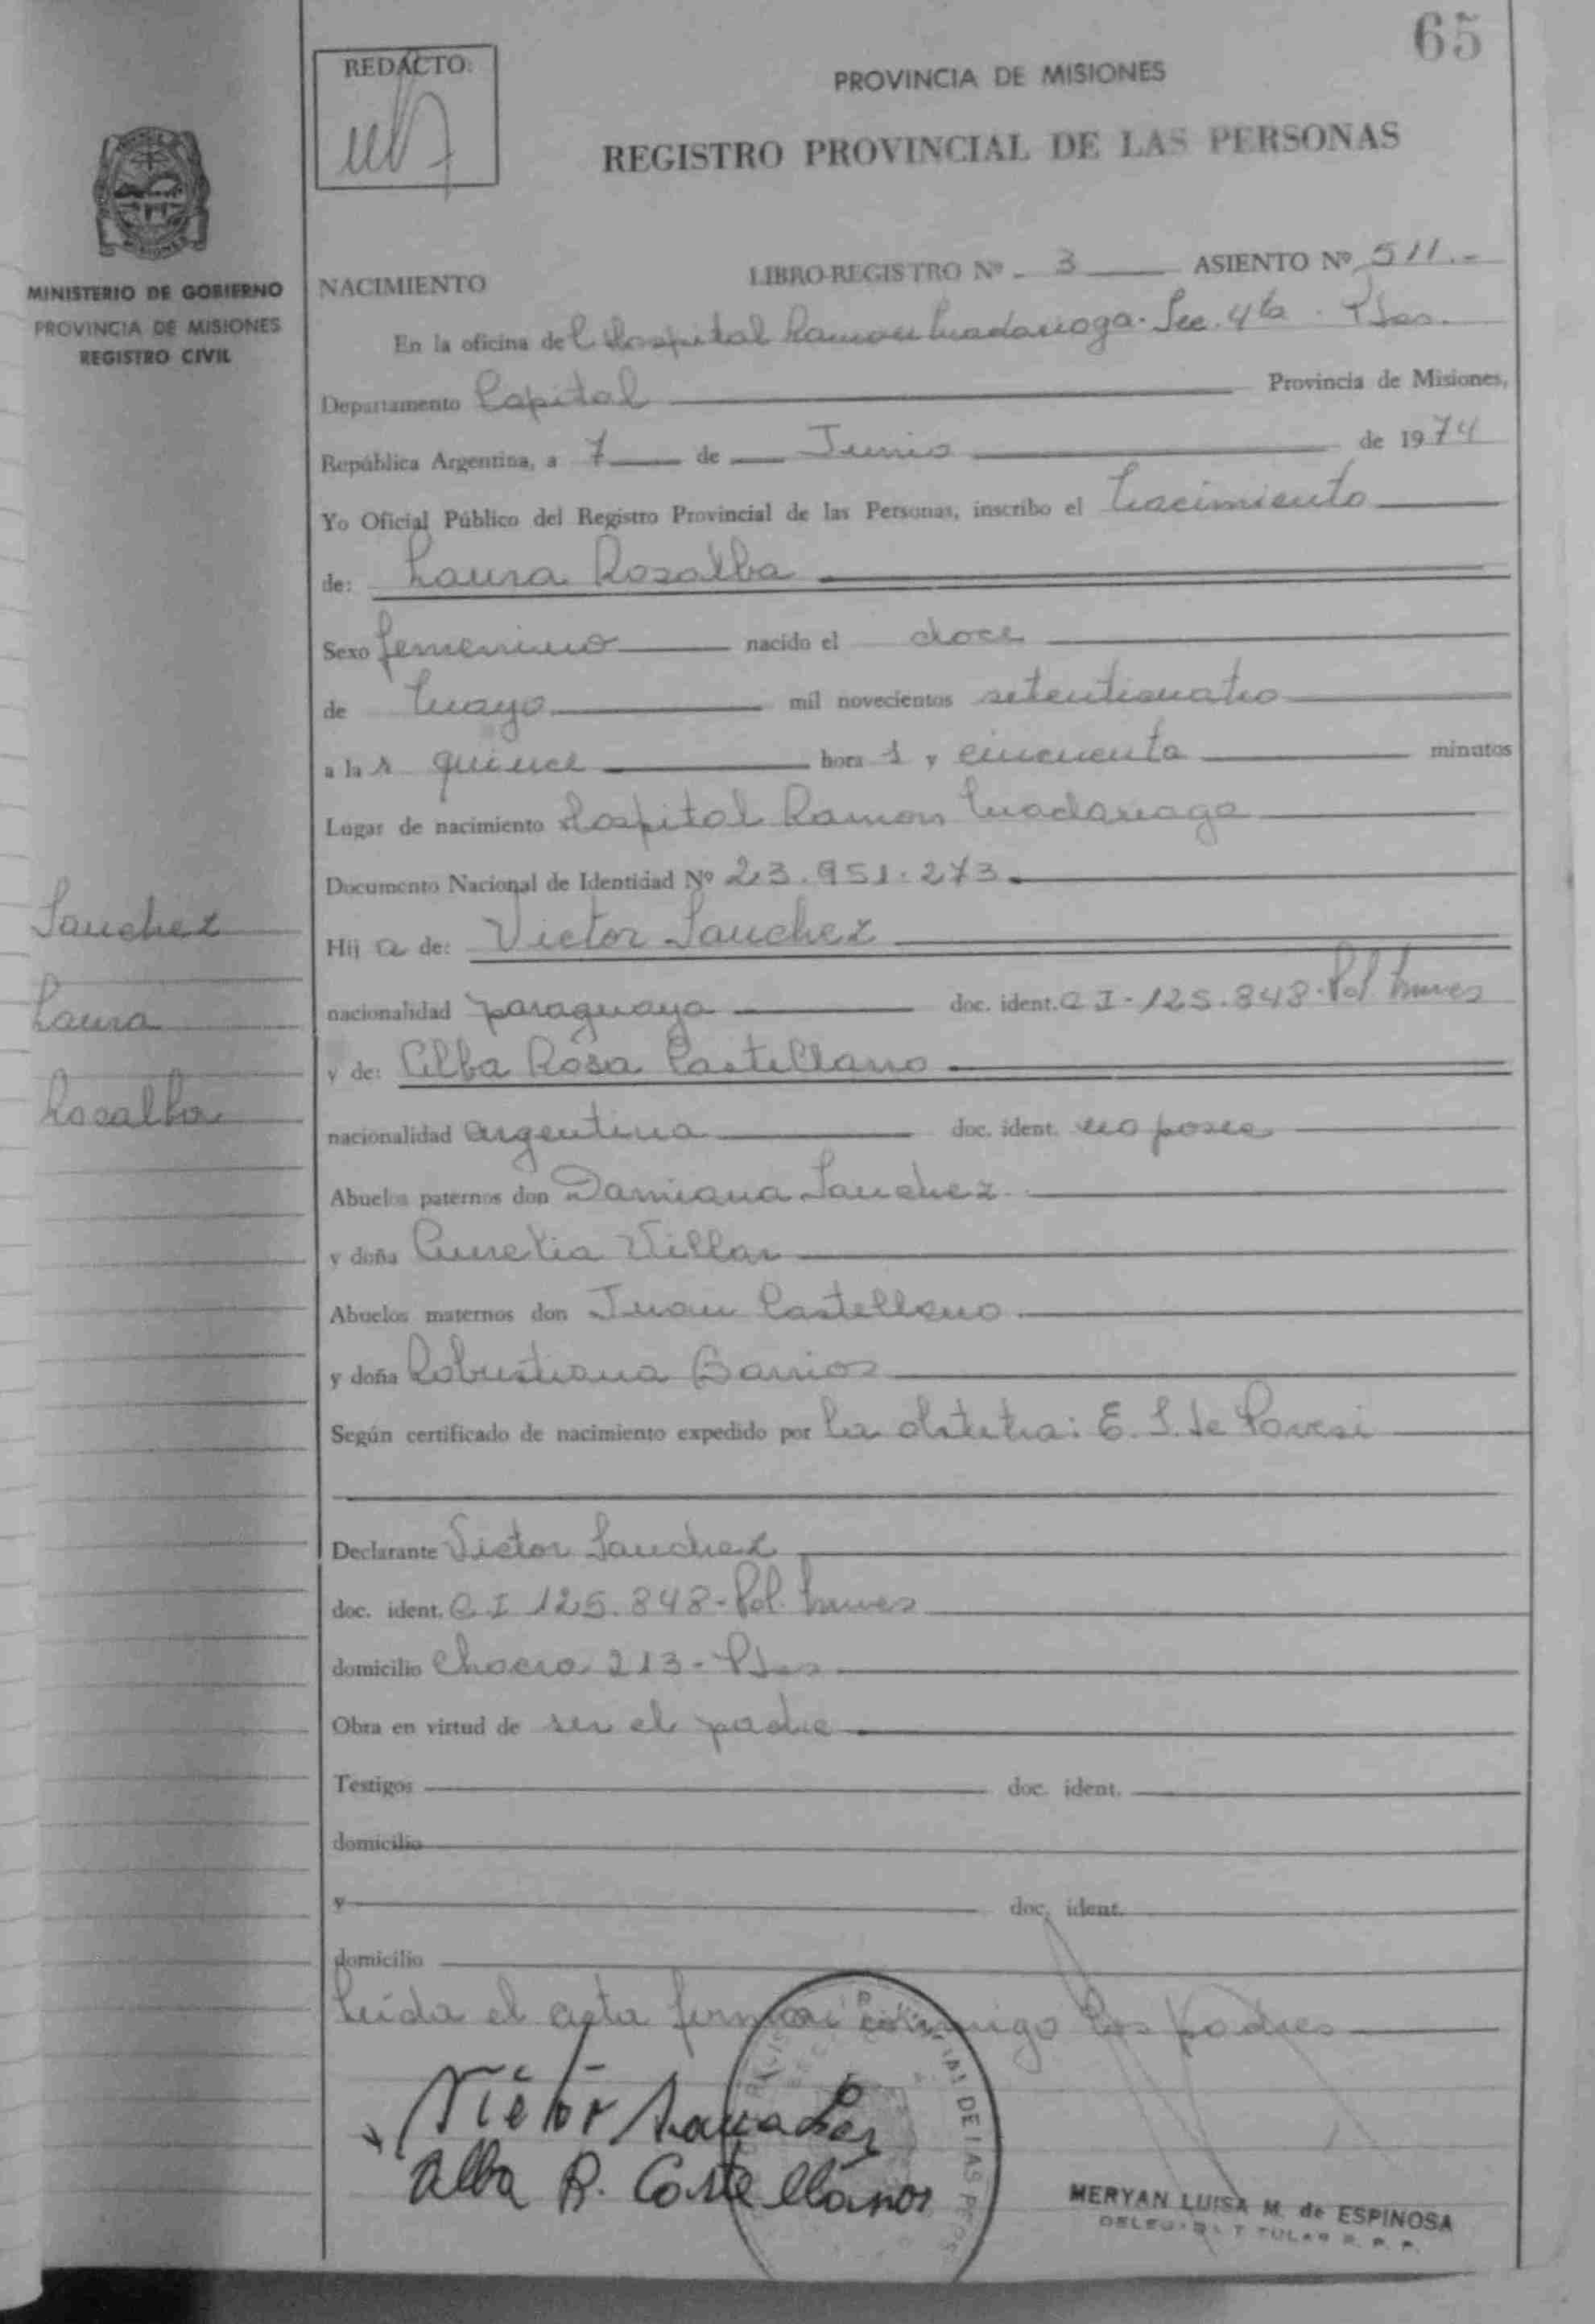 65
REDACTO:
PROVINCIA DE MISIONES
REGISTRO PROVINCIAL DE LAS PERSONAS
MINISTERIO DE GOBIERNO
PROVINCIA DE MISIONES
REGISTRO CIVIL
NACIMIENTO LIBRO-REGISTRO Nº 3 ASIENTO Nº 511.-
En la oficina del Hospital Ramon Madariaga - Sec. 4ta. Pdas.
Departamento Capital Provincia de Misiones,
República Argentina, a 7 de Junio de 1974
Yo Oficial Público del Registro Provincial de las Personas, inscribo el nacimiento
de: Laura Rosalba
Sexo femenino nacido el doce
de mayo mil novecientos setenticuatro
a las quince horas y cincuenta minutos
Lugar de nacimiento Hospital Ramon Madariaga
Documento Nacional de Identidad Nº 23.951.273
Sanchez
Hija de: Victor Sanchez
Laura
nacionalidad paraguaya doc. ident. C I - 125.848 - Pol. Mnes
Rosalba
y de: Alba Rosa Castellano
nacionalidad argentina doc. ident. no posee
Abuelos paternos don Damiana Sanchez
y doña Aurelia Villar
Abuelos maternos don Juan Castellano
y doña Robustiana Barrios
Según certificado de nacimiento expedido por la obstetra: E. S. de
Declarante Victor Sanchez
doc. ident. C I 125.848 - Pol. Mnes
domicilio Chacra 213 - Pdas
Obra en virtud de ser el padre
Testigos doc. ident.
domicilio
y doc. ident.
domicilio
Leida el acta firman conmigo los padres
Victor Sanchez
Alba R. Castellanos
MERYAN LUISA M. de ESPINOSA
DELEGADA TITULAR R. P. P.